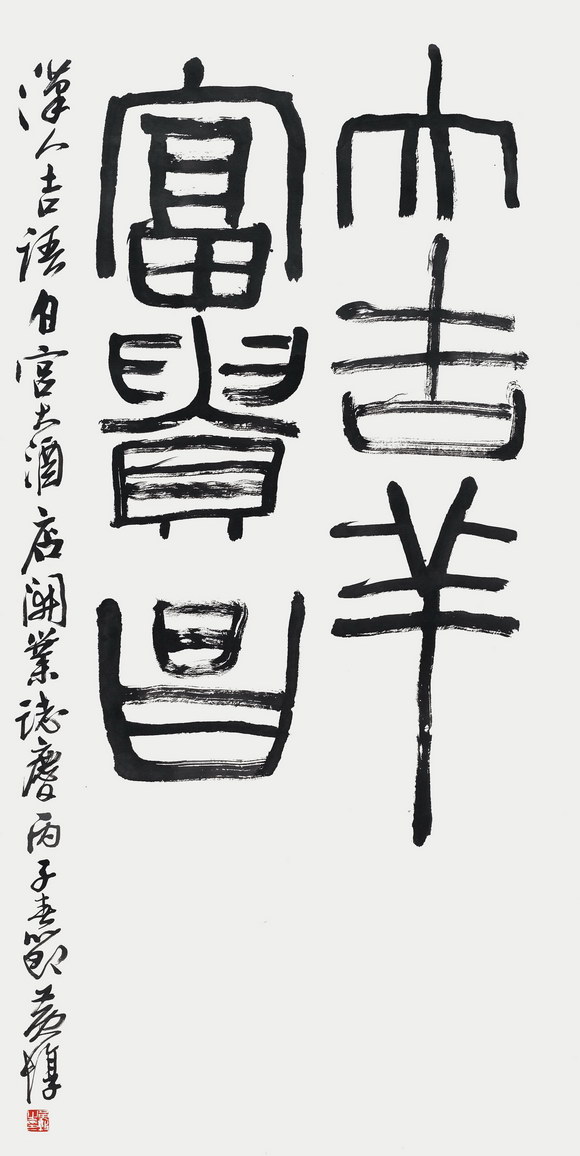 大吉羊
富貴昌
漢人吉語白宮大酒店開業誌慶丙子春節黃惇